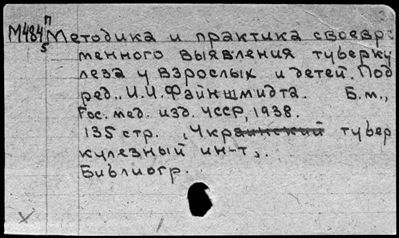 М484п/5 Методика и практика своевре
менного выявления туберку
леза у взрослых и детей. Под
ред. И.И. Файншмидта. Б.м.,
Гос. мед. изд. УССР, 1938.
135 стр. (Украинский тубер
кулезный ин-т).
Библиогр.